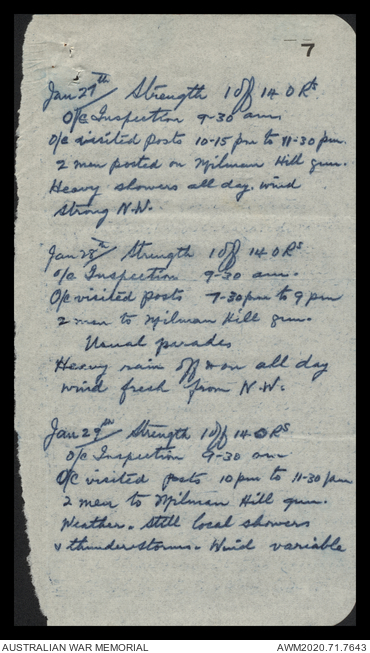 7
Jan 27th Strength 1 off 14 ORs.
O/C Inspection 9-30 am.
O/C visited posts 10-15 pm to 11-30 pm.
2 men posted on Milman Hill gun.
Heavy showers all day wind
strong N.W.
Jan 28th Strength 1 off 14 ORs
O/C Inspection 9-30 am.
O/C visited posts 7-30 pm to 9 pm
2 men to Milman Hill gun.
Usual parades
Heavy rain off & on all day
wind fresh from N.W.
Jan 29th Strength 1 off 14 ORs
O/C Inspection 9-30 am
O/C visited posts 10 pm to 11-30 pm
2 men to Milman Hill gun.
Weather. Still local showers
& thunderstorms. Wind variable
AUSTRALIAN WAR MEMORIAL AWM2020.71.7643